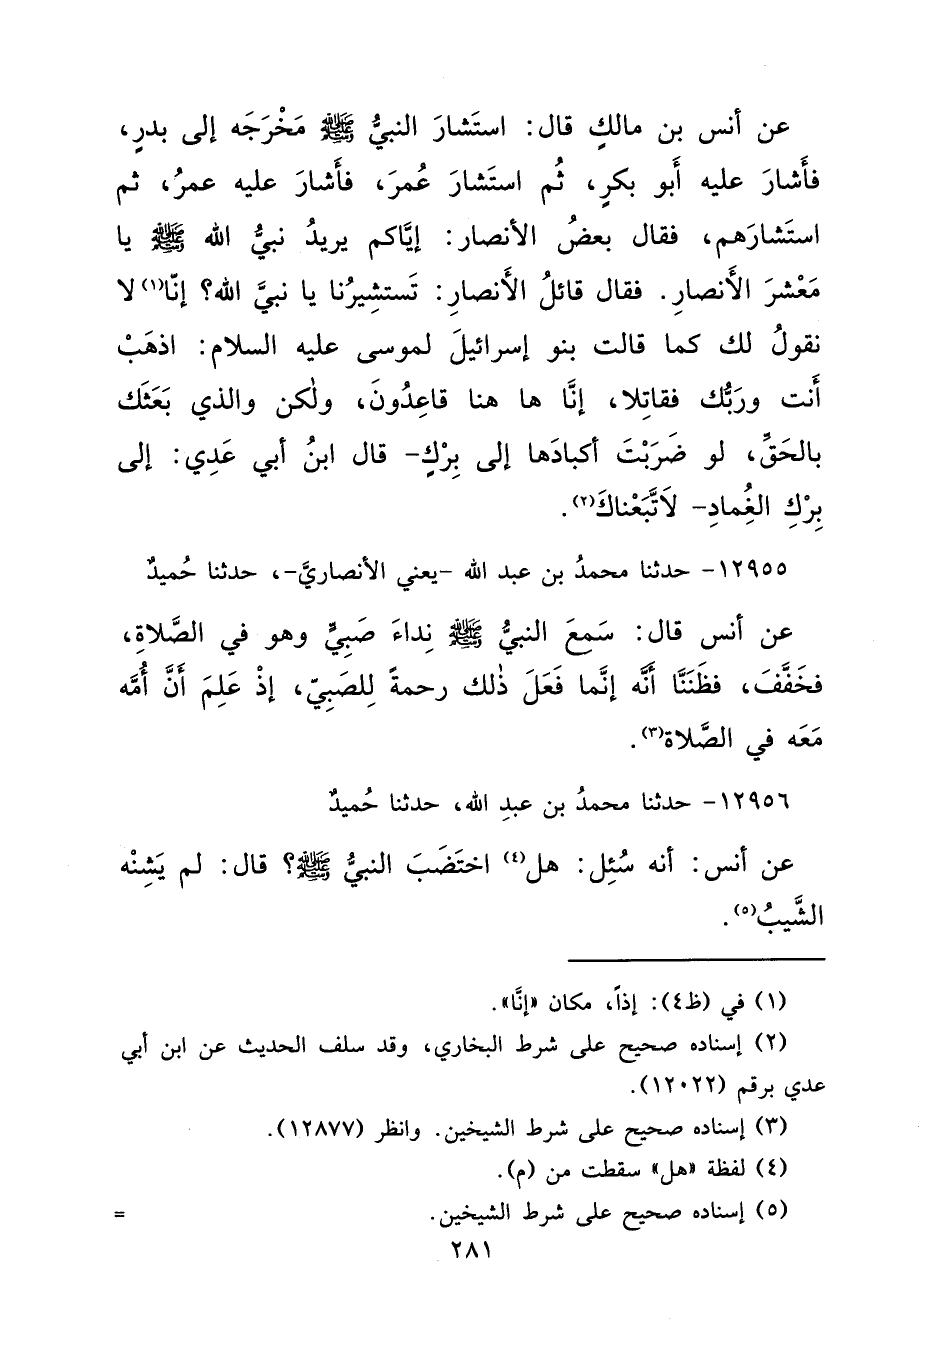 عن أنس بن مالكٍ قال: استَشارَ النبيُّ ﷺ مَخْرَجَه إلى بدرٍ،
فأَشارَ عليه أَبو بكرٍ، ثُم استَشارَ عُمرَ، فأَشارَ عليه عمرُ، ثم
استَشارَهم، فقال بعضُ الأنصار: إيَّاكم يريدُ نبيُّ الله ﷺ يا
مَعْشرَ الأَنصارِ. فقال قائلُ الأَنصارِ: تَستشيرُنا يا نبيَّ الله؟ إنّا(١) لا
نقولُ لك كما قالت بنو إسرائيلَ لموسى عليه السلام: اذهَبْ
أَنت وربُّك فقاتِلا، إنَّا ها هنا قاعِدُونَ، ولٰكن والذي بَعَثَك
بالحَقِّ، لو ضَرَبْتَ أكبادَها إلى بِرْكٍ- قال ابنُ أبي عَدِي: إلى
بِرْكِ الغُِمادِ- لَاتَّبَعْناكَ(٢).
١٢٩٥٥- حدثنا محمدُ بن عبد الله -يعني الأنصاريَّ-، حدثنا حُميدٌ
عن أنس قال: سَمِعَ النبيُّ ﷺ نِداءَ صَبِيٍّ وهو في الصَّلاةِ،
فخَفَّفَ، فظَنَنَّا أَنَّه إنَّما فَعَلَ ذٰلك رحمةً لِلصَبِيّ، إذْ عَلِمَ أَنَّ أُمَّه
مَعَه في الصَّلاة(٣).
١٢٩٥٦- حدثنا محمدُ بن عبدِ الله، حدثنا حُميدٌ
عن أنس: أنه سُئِل: هل(٤) اختَضَبَ النبيُّ ﷺ؟ قال: لم يَشِنْه
الشَّيبُ(٥).
(١) في (ظ٤): إذاً، مكان «إنَّا».
(٢) إسناده صحيح على شرط البخاري، وقد سلف الحديث عن ابن أبي
عدي برقم (١٢٠٢٢).
(٣) إسناده صحيح على شرط الشيخين. وانظر (١٢٨٧٧).
(٤) لفظة «هل» سقطت من (م).
(٥) إسناده صحيح على شرط الشيخين. =
٢٨١